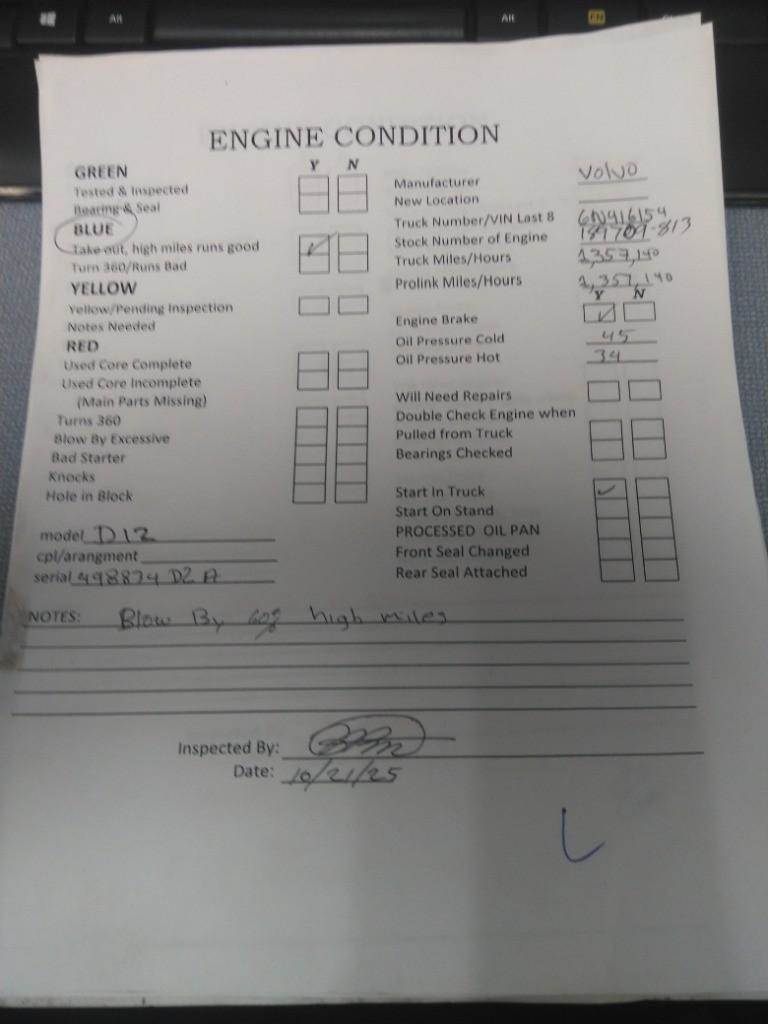 Alt
Alt
FN
ENGINE CONDITION
Y N
GREEN
Tested & Inspected
Bearing & Seal
BLUE
Take out, high miles runs good
Turn 360/Runs Bad
YELLOW
Yellow/Pending Inspection
Notes Needed
RED
Used Core Complete
Used Core Incomplete
(Main Parts Missing)
Turns 360
Blow By Excessive
Bad Starter
Knocks
Hole in Block
model D12
cpl/arangment
serial 498874 D2 A
Manufacturer Volvo
New Location
Truck Number/VIN Last 8 6N416154
Stock Number of Engine
Truck Miles/Hours 1,357,140
Prolink Miles/Hours 1,357,140
Y N
Engine Brake
Oil Pressure Cold 45
Oil Pressure Hot 34
Will Need Repairs
Double Check Engine when
Pulled from Truck
Bearings Checked
Start In Truck
Start On Stand
PROCESSED OIL PAN
Front Seal Changed
Rear Seal Attached
NOTES: Blow By high miles
Inspected By:
Date: 10/21/25